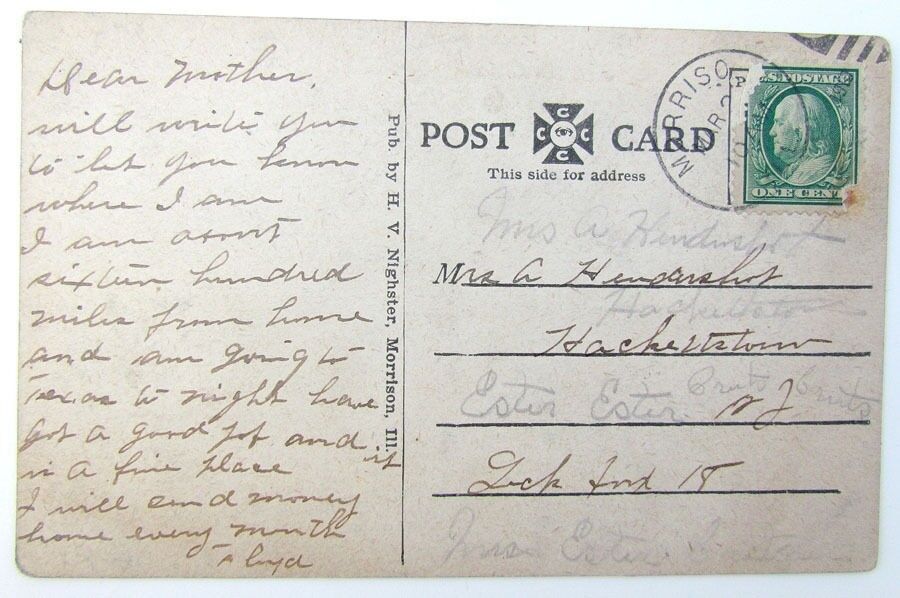 Dear Mother,
will write you
to let you know
where I am
I am about
sixteen hundred
miles from home
and am going to
Texas to night have
got a good job and
in a fine place it
I will send money
home every month
Floyd
Pub. by H. V. Nighster, Morrison, Ill.
POST CARD
C C C C
This side for address
MORRISO
MAR 2
10
P
U.S. POSTAGE
ONE CENT
Mrs A Hendershot
Mrs A Hendershot
Hackettstown
Hackettstown
Ester Ester
N J
Lock
Mrs Ester